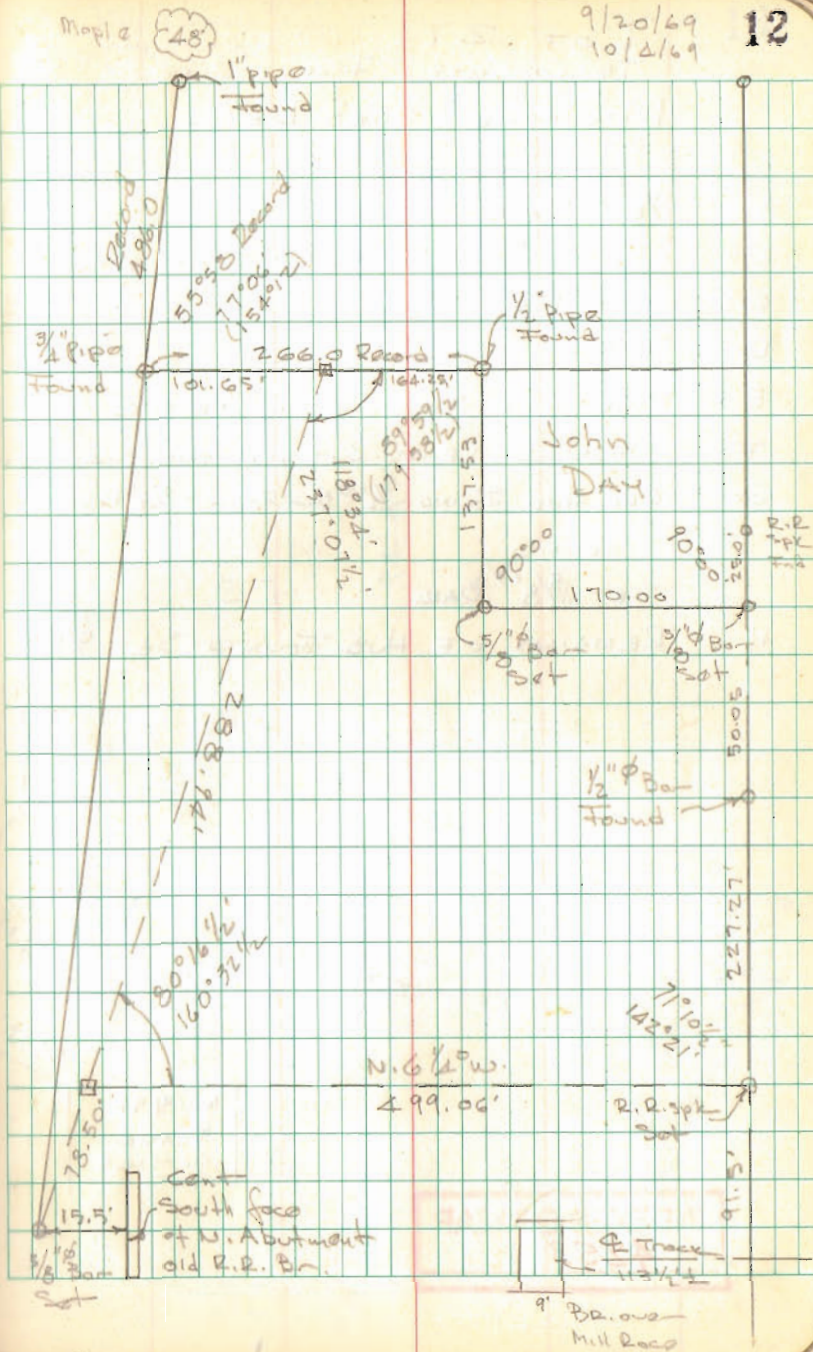 Maple 48"
9/20/69
10/4/69
12
1" pipe
Found
Record
486.0
55°58' Record
77°06'
(154°12')
3/4" Pipe
Found
266.0 Record
101.65'
164.25'
1/2" Pipe
Found
89°59 1/2
118°34'
237°07 1/2'
137.53
John
DAY
90°00'
90°00'
25.0'
R.R
Spk
170.00
5/8" Φ Bar
Set
5/8" Φ Bar
Set
50.05
288.94'
1/2" Φ Bar
Found
227.27'
80°16 1/2'
160°32 1/2
71°10 1/2'
142°21'
N. 6 1/4° W.
499.06'
R.R. spk
Set
78.50'
91.5'
15.5'
Cent
South face
of N. Abutment
old R.R. Br.
5/8" Bar
Set
℄ Track
113 1/2° ±
9'
BR. over
Mill Race